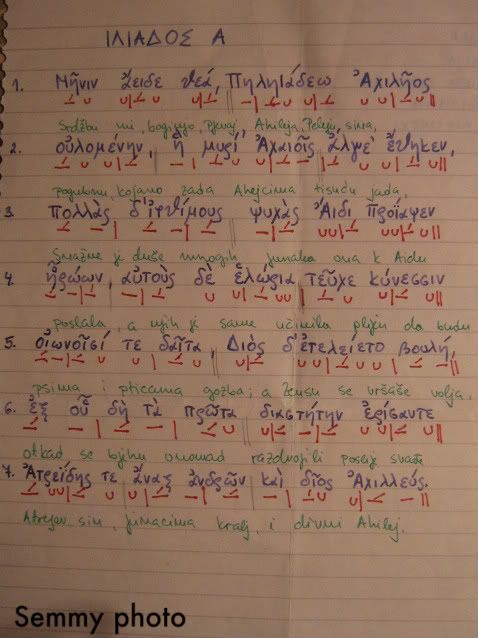 ΙΛΙΑΔΟΣ Α
1. Μῆνιν ἄειδε θεά, Πηληϊάδεω Ἀχιλῆος
Srdžbu mi, boginjo, pjevaj Ahileja, Peleju sina,
2. οὐλομένην, ἣ μυρί' Ἀχαιοῖς ἄλγε' ἔθηκεν,
pogubnu, kojano zada Ahejcima tisuću jada,
3. πολλὰς δ' ἰφθίμους ψυχὰς Ἄϊδι προΐαψεν
Snažne je duše mnogih junaka ona k Aidu
4. ἡρώων, αὐτοὺς δὲ ἑλώρια τεῦχε κύνεσσιν
poslala, a njih je same učinila plijen da budu
5. οἰωνοῖσί τε δαῖτα, Διὸς δ' ἐτελείετο βουλή,
psima i pticama gozba; a Zeusu se vršaše volja,
6. ἐξ οὗ δὴ τὰ πρῶτα διαστήτην ἐρίσαντε
otkad se bjehu onomad razdvojili poslije svađe
7. Ἀτρεΐδης τε ἄναξ ἀνδρῶν καὶ δῖος Ἀχιλλεύς.
Atrejev sin, junacima kralj, i divni Ahilej.
Semmy photo